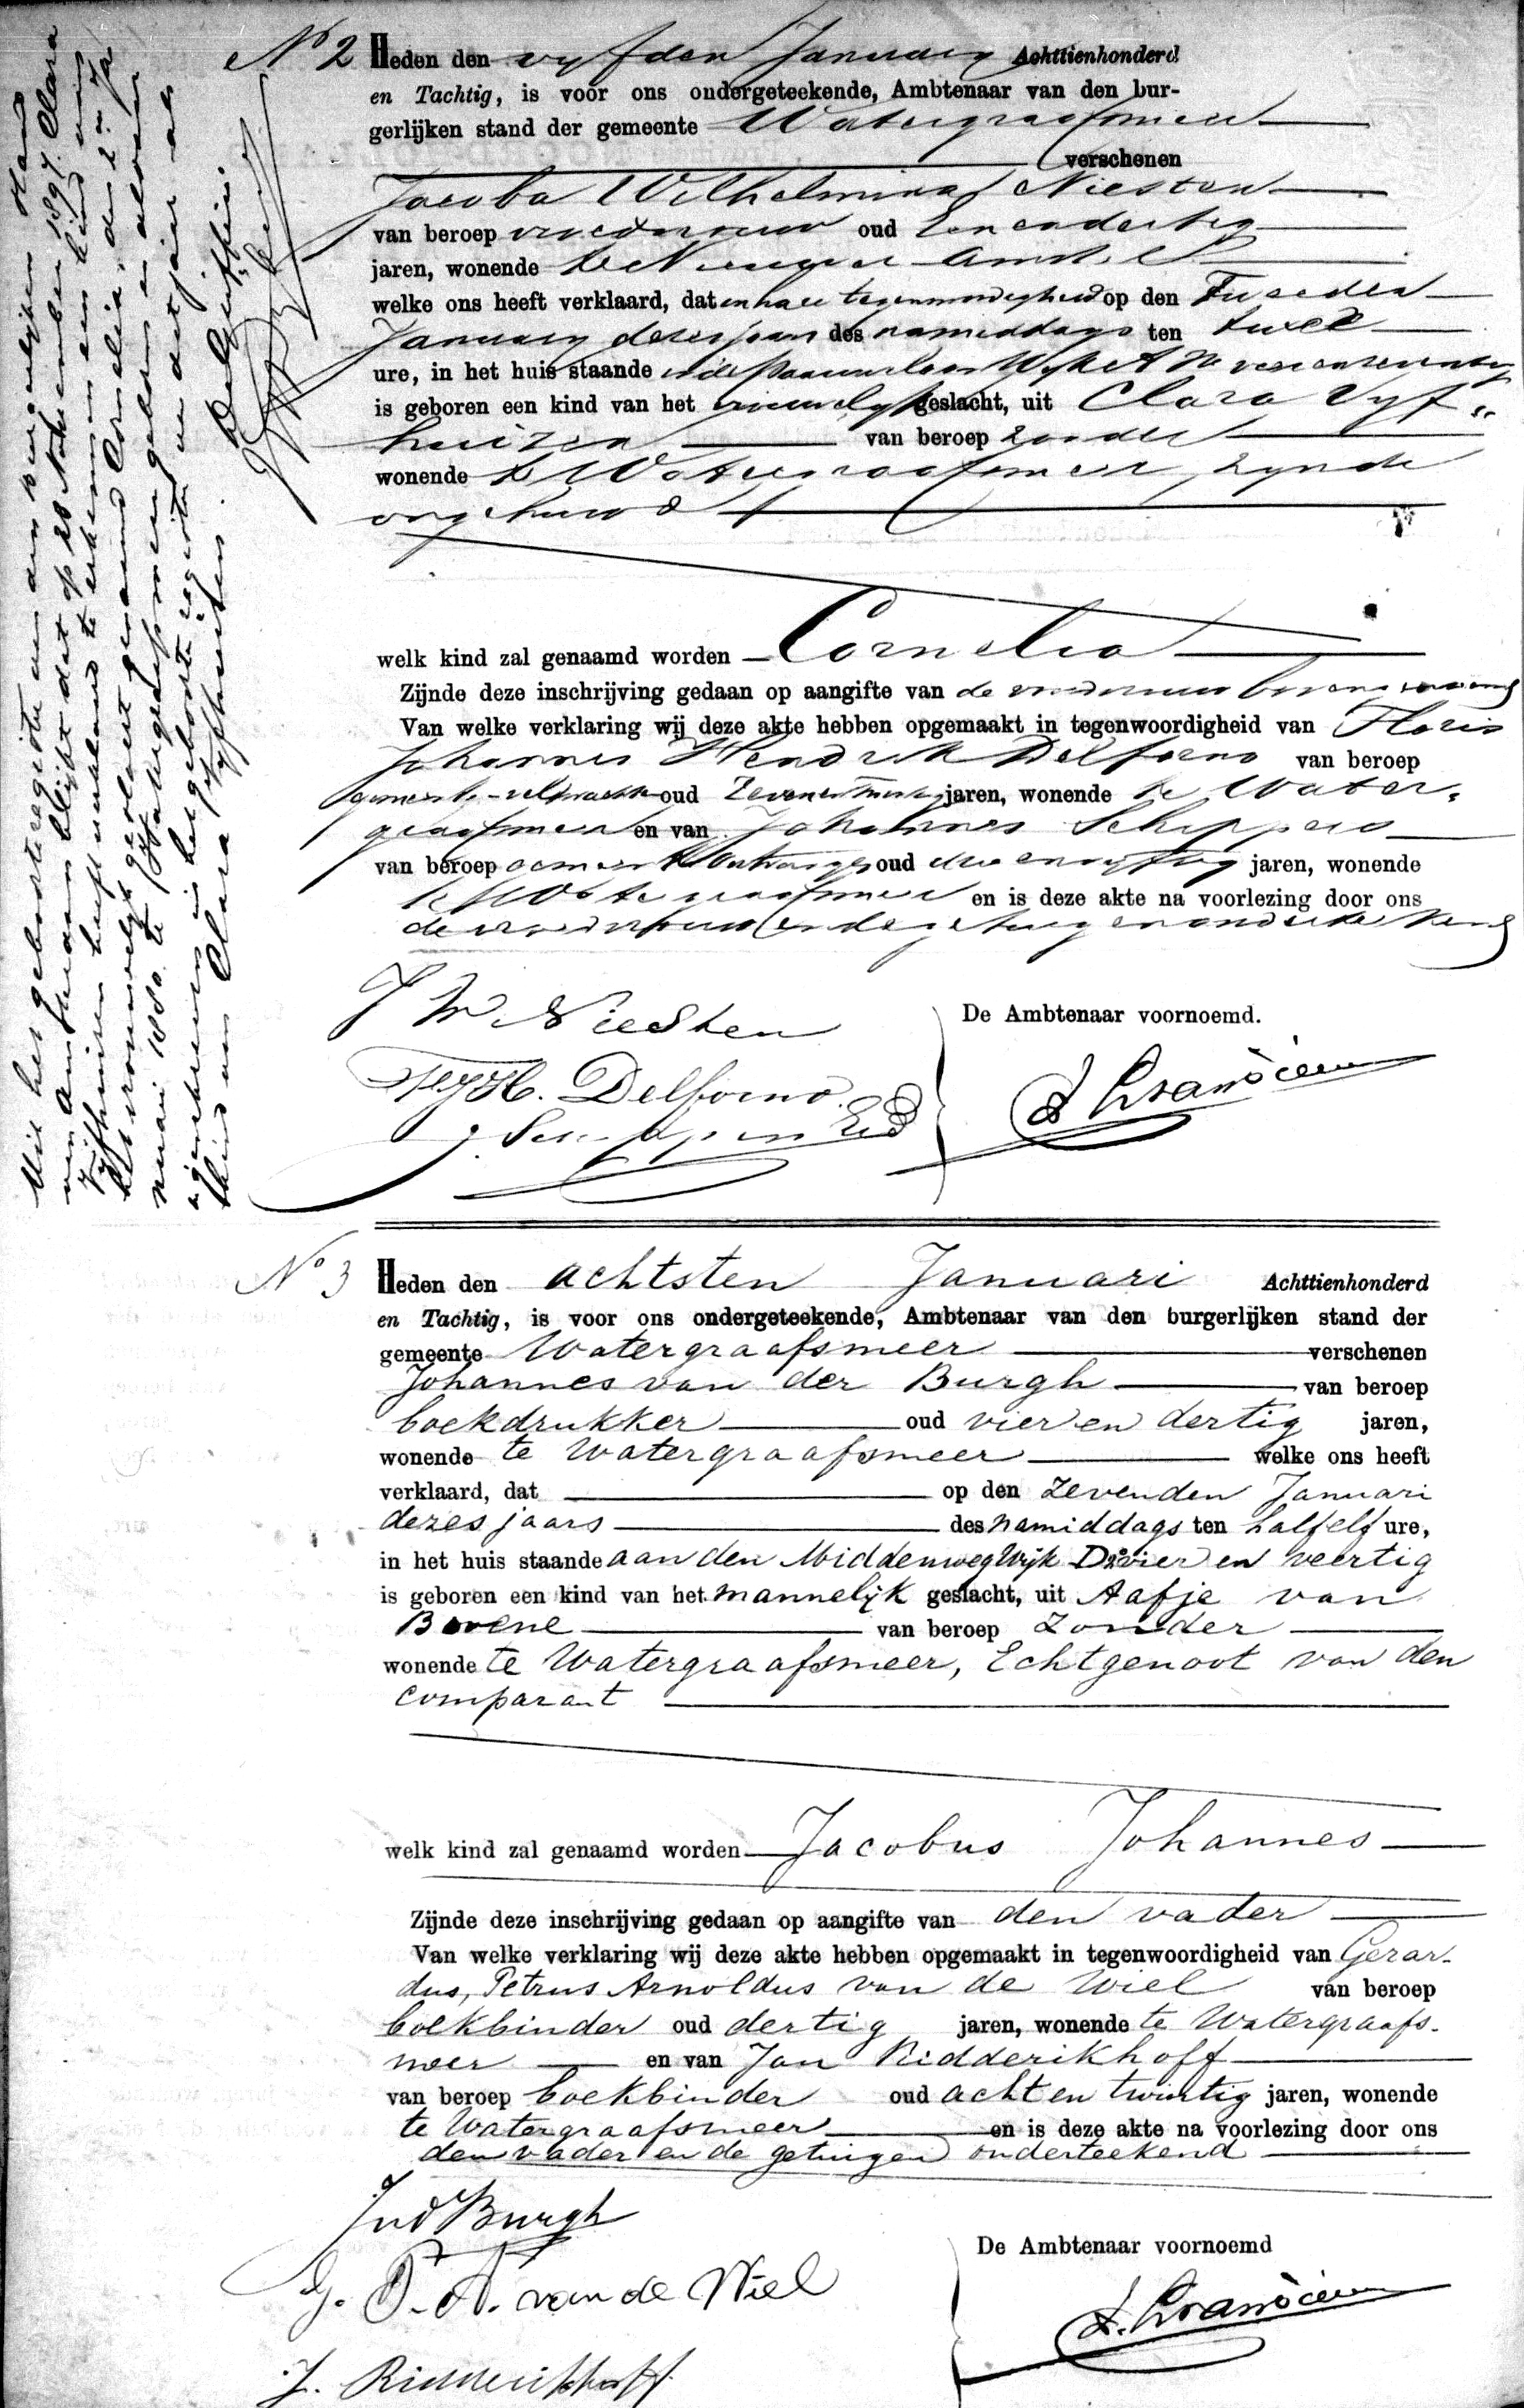 Uit het geboorteregister van den burgerlijken stand
van Amsterdam blijkt dat op 28 November 1897. Clara
Vijfhuizen heeft verklaard te erkennen een kind van
het vrouwelijk geslacht genaamd Cornelia, den 2n Ja
nuari 1880 te Watergraafsmeer geboren en aldaar
ingeschreven in het geboorte register van dat jaar als
kind van Clara Vijfhuizen.
No 2 Heden den vyfden January Achttienhonderd
en Tachtig, is voor ons ondergeteekende, Ambtenaar van den bur-
gerlijken stand der gemeente Watergraafsmeer
verschenen
Jacoba Wilhelmina Niesten
van beroep vroedvrouw oud Een en dertig
jaren, wonende te Nieuwer Amstel
welke ons heeft verklaard, dat in hare tegenwoordigheid op den Tweeden
January dezes jaars des namiddags ten twee
ure, in het huis staande in de Paauwlaan Wyk A No
is geboren een kind van het vrouwelyk geslacht, uit Clara Vyf„
huizen van beroep zonder
wonende te Watergraafsmeer, zynde
ongehuwd
welk kind zal genaamd worden Cornelia
Zijnde deze inschrijving gedaan op aangifte van de vroedvrouw bovengenoemd
Van welke verklaring wij deze akte hebben opgemaakt in tegenwoordigheid van Floris
Johannes Hendrik Delforno van beroep
gemeente-veldwachter oud Zevenentwintig jaren, wonende te Water„
graafsmeer en van Johannes Schippers
van beroep gemeente Ontvanger oud drie en vyftig jaren, wonende
te Watergraafsmeer en is deze akte na voorlezing door ons
de vroedvrouw en de getuigen onderteekend
J W Niesten
F J H. Delforno.
De Ambtenaar voornoemd.
No 3 Heden den achtsten Januari Achttienhonderd
en Tachtig, is voor ons ondergeteekende, Ambtenaar van den burgerlijken stand der
gemeente Watergraafsmeer verschenen
Johannes van der Burgh van beroep
boekdrukker oud vier en dertig jaren,
wonende te Watergraafsmeer welke ons heeft
verklaard, dat op den zevenden Januari
dezes jaars des namiddags ten half elf ure,
in het huis staande aan den Middenweg Wijk D vier en veertig
is geboren een kind van het mannelijk geslacht, uit Aafje van
Bovene van beroep zonder
wonende te Watergraafsmeer, Echtgenoot van den
comparant
welk kind zal genaamd worden Jacobus Johannes
Zijnde deze inschrijving gedaan op aangifte van den vader
Van welke verklaring wij deze akte hebben opgemaakt in tegenwoordigheid van Gerar-
dus, Petrus Arnoldus van de Wiel van beroep
boekbinder oud dertig jaren, wonende te Watergraafs-
meer en van Jan Ridderikhoff
van beroep boekbinder oud acht en twintig jaren, wonende
te Watergraafsmeer en is deze akte na voorlezing door ons
den vader en de getuigen onderteekend
JvdBurgh
G. P. A. van de Wiel
J. Ridderikhoff.
De Ambtenaar voornoemd